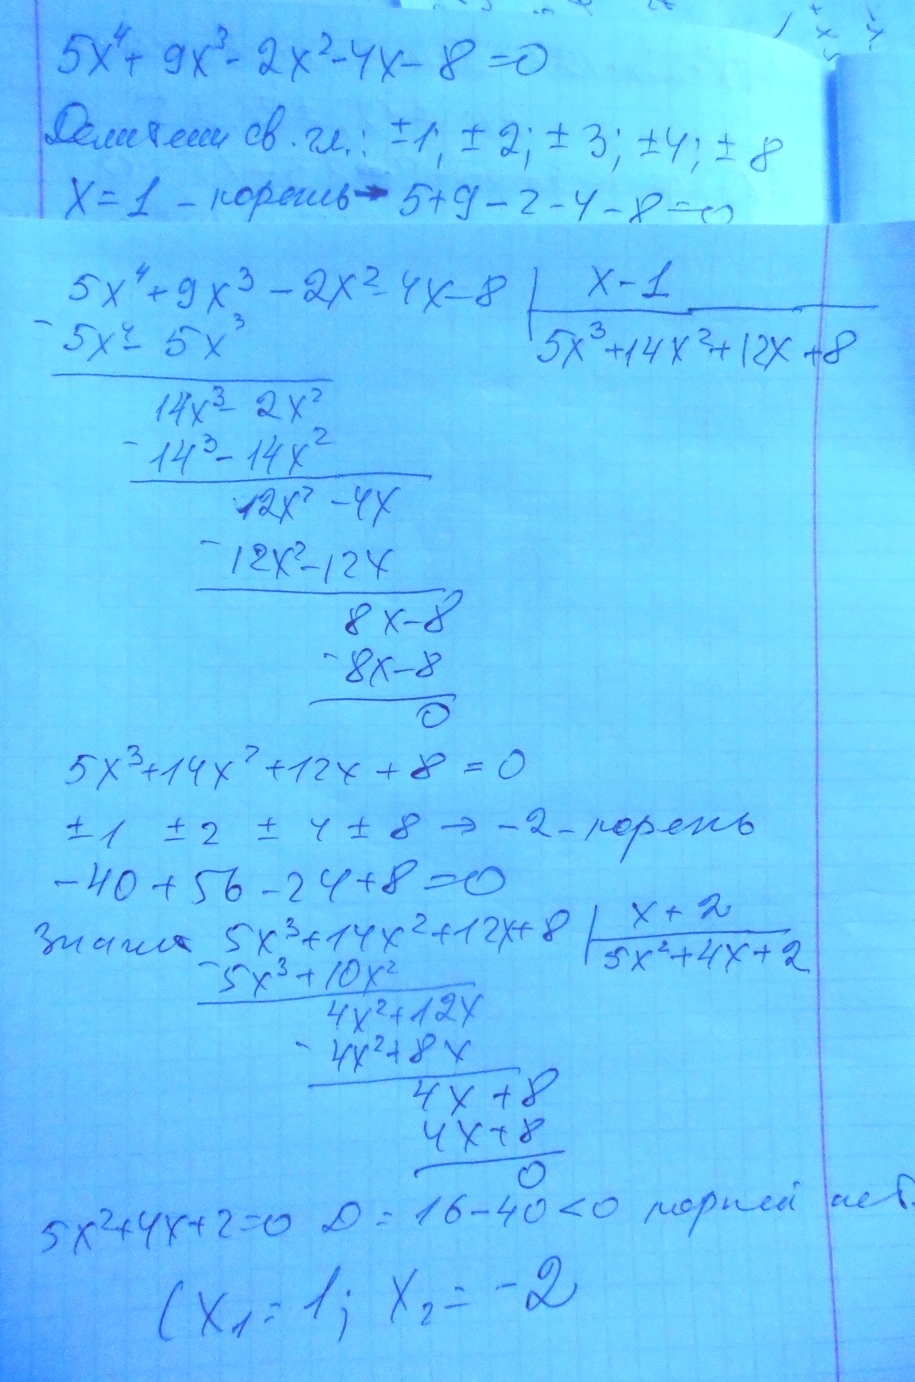 5x⁴+9x³-2x²-4x-8=0
Делители св. чл.: ±1; ±2; ±3; ±4; ±8
x=1 - корень→ 5+9-2-4-8=0
5x⁴+9x³-2x²-4x-8 | x-1
- 5x⁴-5x³ | 5x³+14x²+12x+8
14x³-2x²
- 14³-14x²
12x²-4x
- 12x²-12x
8x-8
- 8x-8
0
5x³+14x²+12x+8=0
±1 ±2 ±4 ±8 → -2-корень
-40+56-24+8=0
Значит 5x³+14x²+12x+8 | x+2
- 5x³+10x² | 5x²+4x+2
4x²+12x
- 4x²+8x
4x+8
4x+8
0
5x²+4x+2=0 D=16-40<0 корней нет.
(x₁=1; x₂=-2